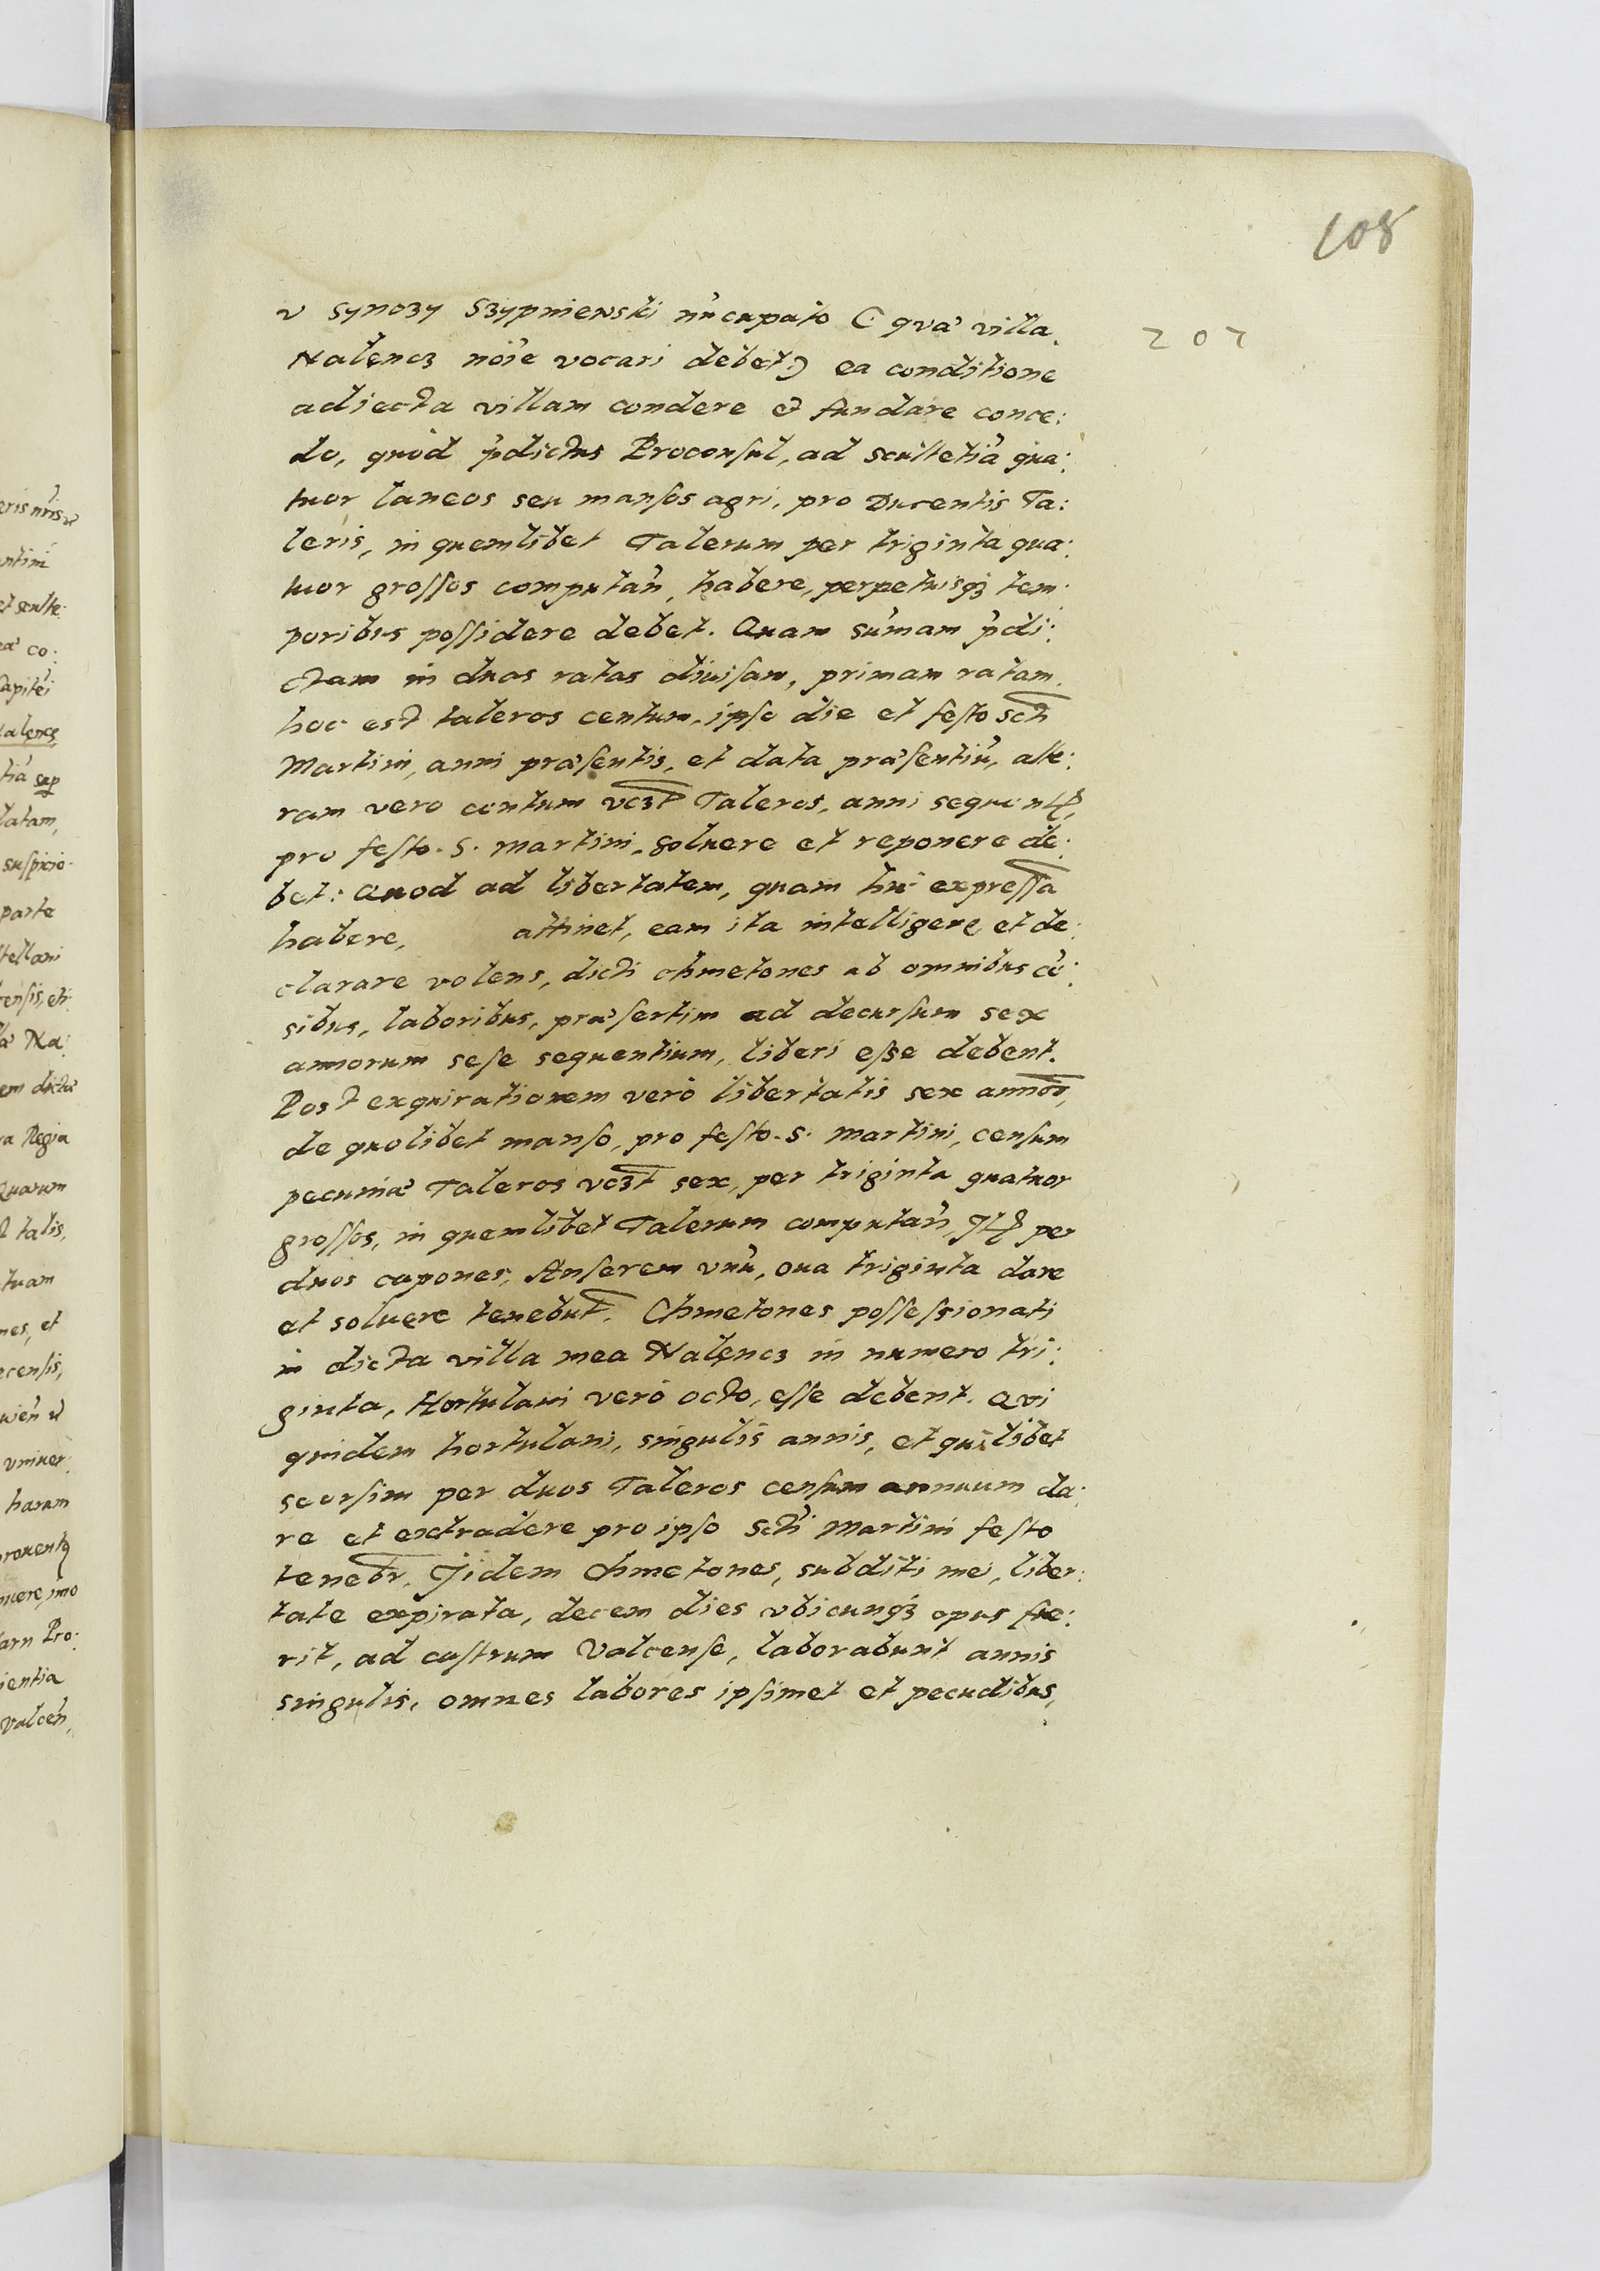 108
207
v synozy Szypniewski nũcupato (: quæ villa
Nalęncz nõie vocari debet:) ea conditione
adiecta villam condere et fundare conce:
do, quod p̃dictus Proconsul, ad scultetiã qua:
tuor laneos seu mansos agri, pro Ducentis Ta:
leris, in quemlibet Talerum per triginta qua:
tuor grossos computañ, habere, perpetuisq; tem:
poribus possidere debet. Quam sũmam p̃di:
ctam in duas ratas diuisam, primam ratam
hoc est taleros centum, ipso die et festo Scti
Martini, anni præsentis, et data præsentiũ, alte:
ram vero centum vczt Taleros, anni sequent̃,
pro festo S. Martini, soluere et reponere de:
bet: Quod ad libertatem, quam hic expressã
habere, attinet, eam ita intelligere et de:
clarare volens, dicti chmetones ab omnibus cẽ:
sibus, laboribus, præsertim ad decursum sex
annorum sese sequentium, liberi esse debent.
Post exquirationem verò libertatis sex annoȓ,
de quolibet manso, pro festo S. Martini, censum
pecuniæ Taleros vczt sex, per triginta quatuor
grossos, in quemlibet Talerum computañ, Itt̃ per
duos capones, Anserem vnũ, oua triginta dare
et soluere tenebunt̃. Chmetones possessionati
in dicta villa mea Nalęncz in numero tri:
ginta, Hortulani verò octo, esse debent. Qui
quidem hortulani, singulis annis, et quilibet
seorsim per duos Taleros censum annuum da:
re et extradere pro ipso Scti Martini festo
tenebr̃. Iidem Chmetones, subditi mei, liber:
tate expirata, decem dies vbicunq; opus fue:
rit, ad castrum Valcense, laborabunt annis
singulis, omnes labores ipsimet et pecudibus,
eris nr̃is
et sculte:
eã co:
Capitei
Nalęncz
latam,
suspicio:
parte
tellani
censis, eti
ã Na:
em dictã
va Regia
Quarum
talis,
tuam
nes, et
censis,
vniuer:
harum
prouentq
nuere, imo
larn Pro:
ientia
Valceñ,